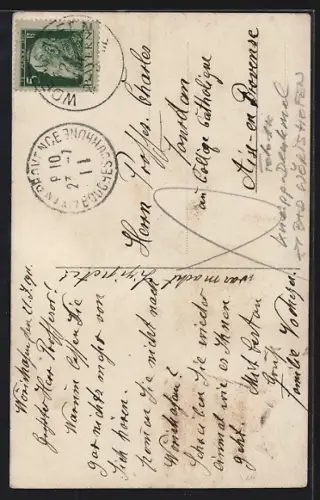 5
BAYERN
WÖRI
AIX EN PROVENCE
9 10
27 - 7
11
BOUCHES DU RHONE
Herrn Proffes. Charles
Jourdan
au Collège Catholique
Aix-en Provence
FOTO-AK
Kneipp-Denkmal
IN
BAD WÖRISHOFEN
Wörishofen
Geehrter Herr Proffesor!
Warum lassen Sie
gar nichts mehr von
Sich hören.
Kommen Sie nicht nach
Wörishofen?
Schreiben Sie wieder
einmal wie es Ihnen
geht.
Mit besten
Gruß
Familie
was macht